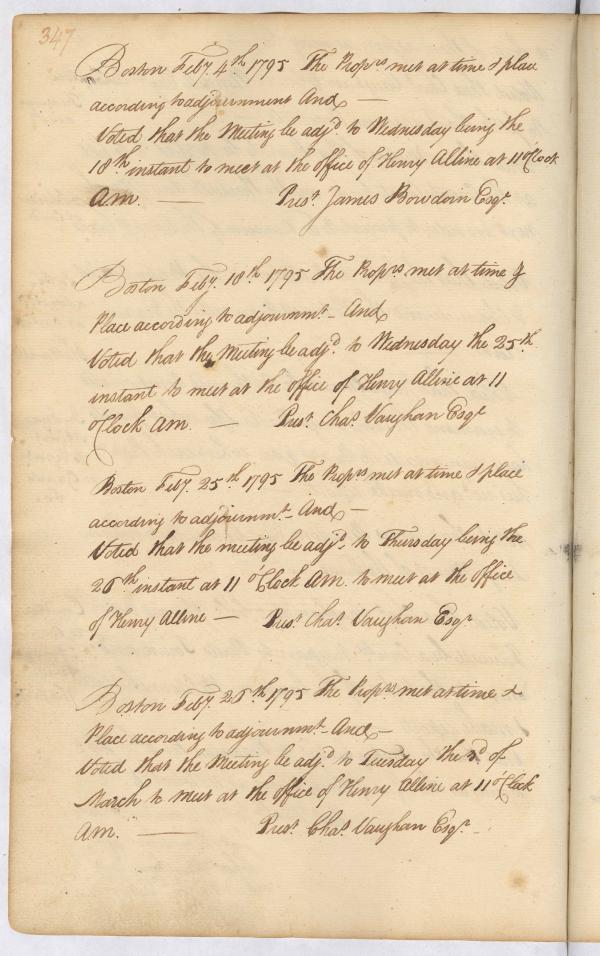 347
Boston Feby. 4th 1795 The Proprs met at time & place
according to adjournment And
Voted that the Meeting be adjd to Wednesday being the
18th instant to meet at the office of Henry Alline at 11 o'Clock
AM. — Prest James Bowdoin Esqr.
Boston Feby. 18th 1795 The Proprs met at time &
Place according to adjournmt. And
Voted that the Meeting be adjd to Wednesday the 25th
instant to meet at the office of Henry Alline at 11
o'Clock AM. — Prest Chas Vaughan Esqr
Boston Feby. 25th 1795 The Proprs met at time & place
according to adjournmt. And —
Voted that the meeting be adjd. to Thursday being the
26th instant at 11 o'Clock AM. to meet at the office
of Henry Alline — Prest Chas Vaughan Esqr
Boston Feby. 26th 1795 The Proprs met at time &
Place according to adjournmt. And —
Voted that the Meeting be adjd to Tuesday the 3d of
March to meet at the office of Henry Alline at 11 o'Clock
AM. — Prest Chas Vaughan Esqr.